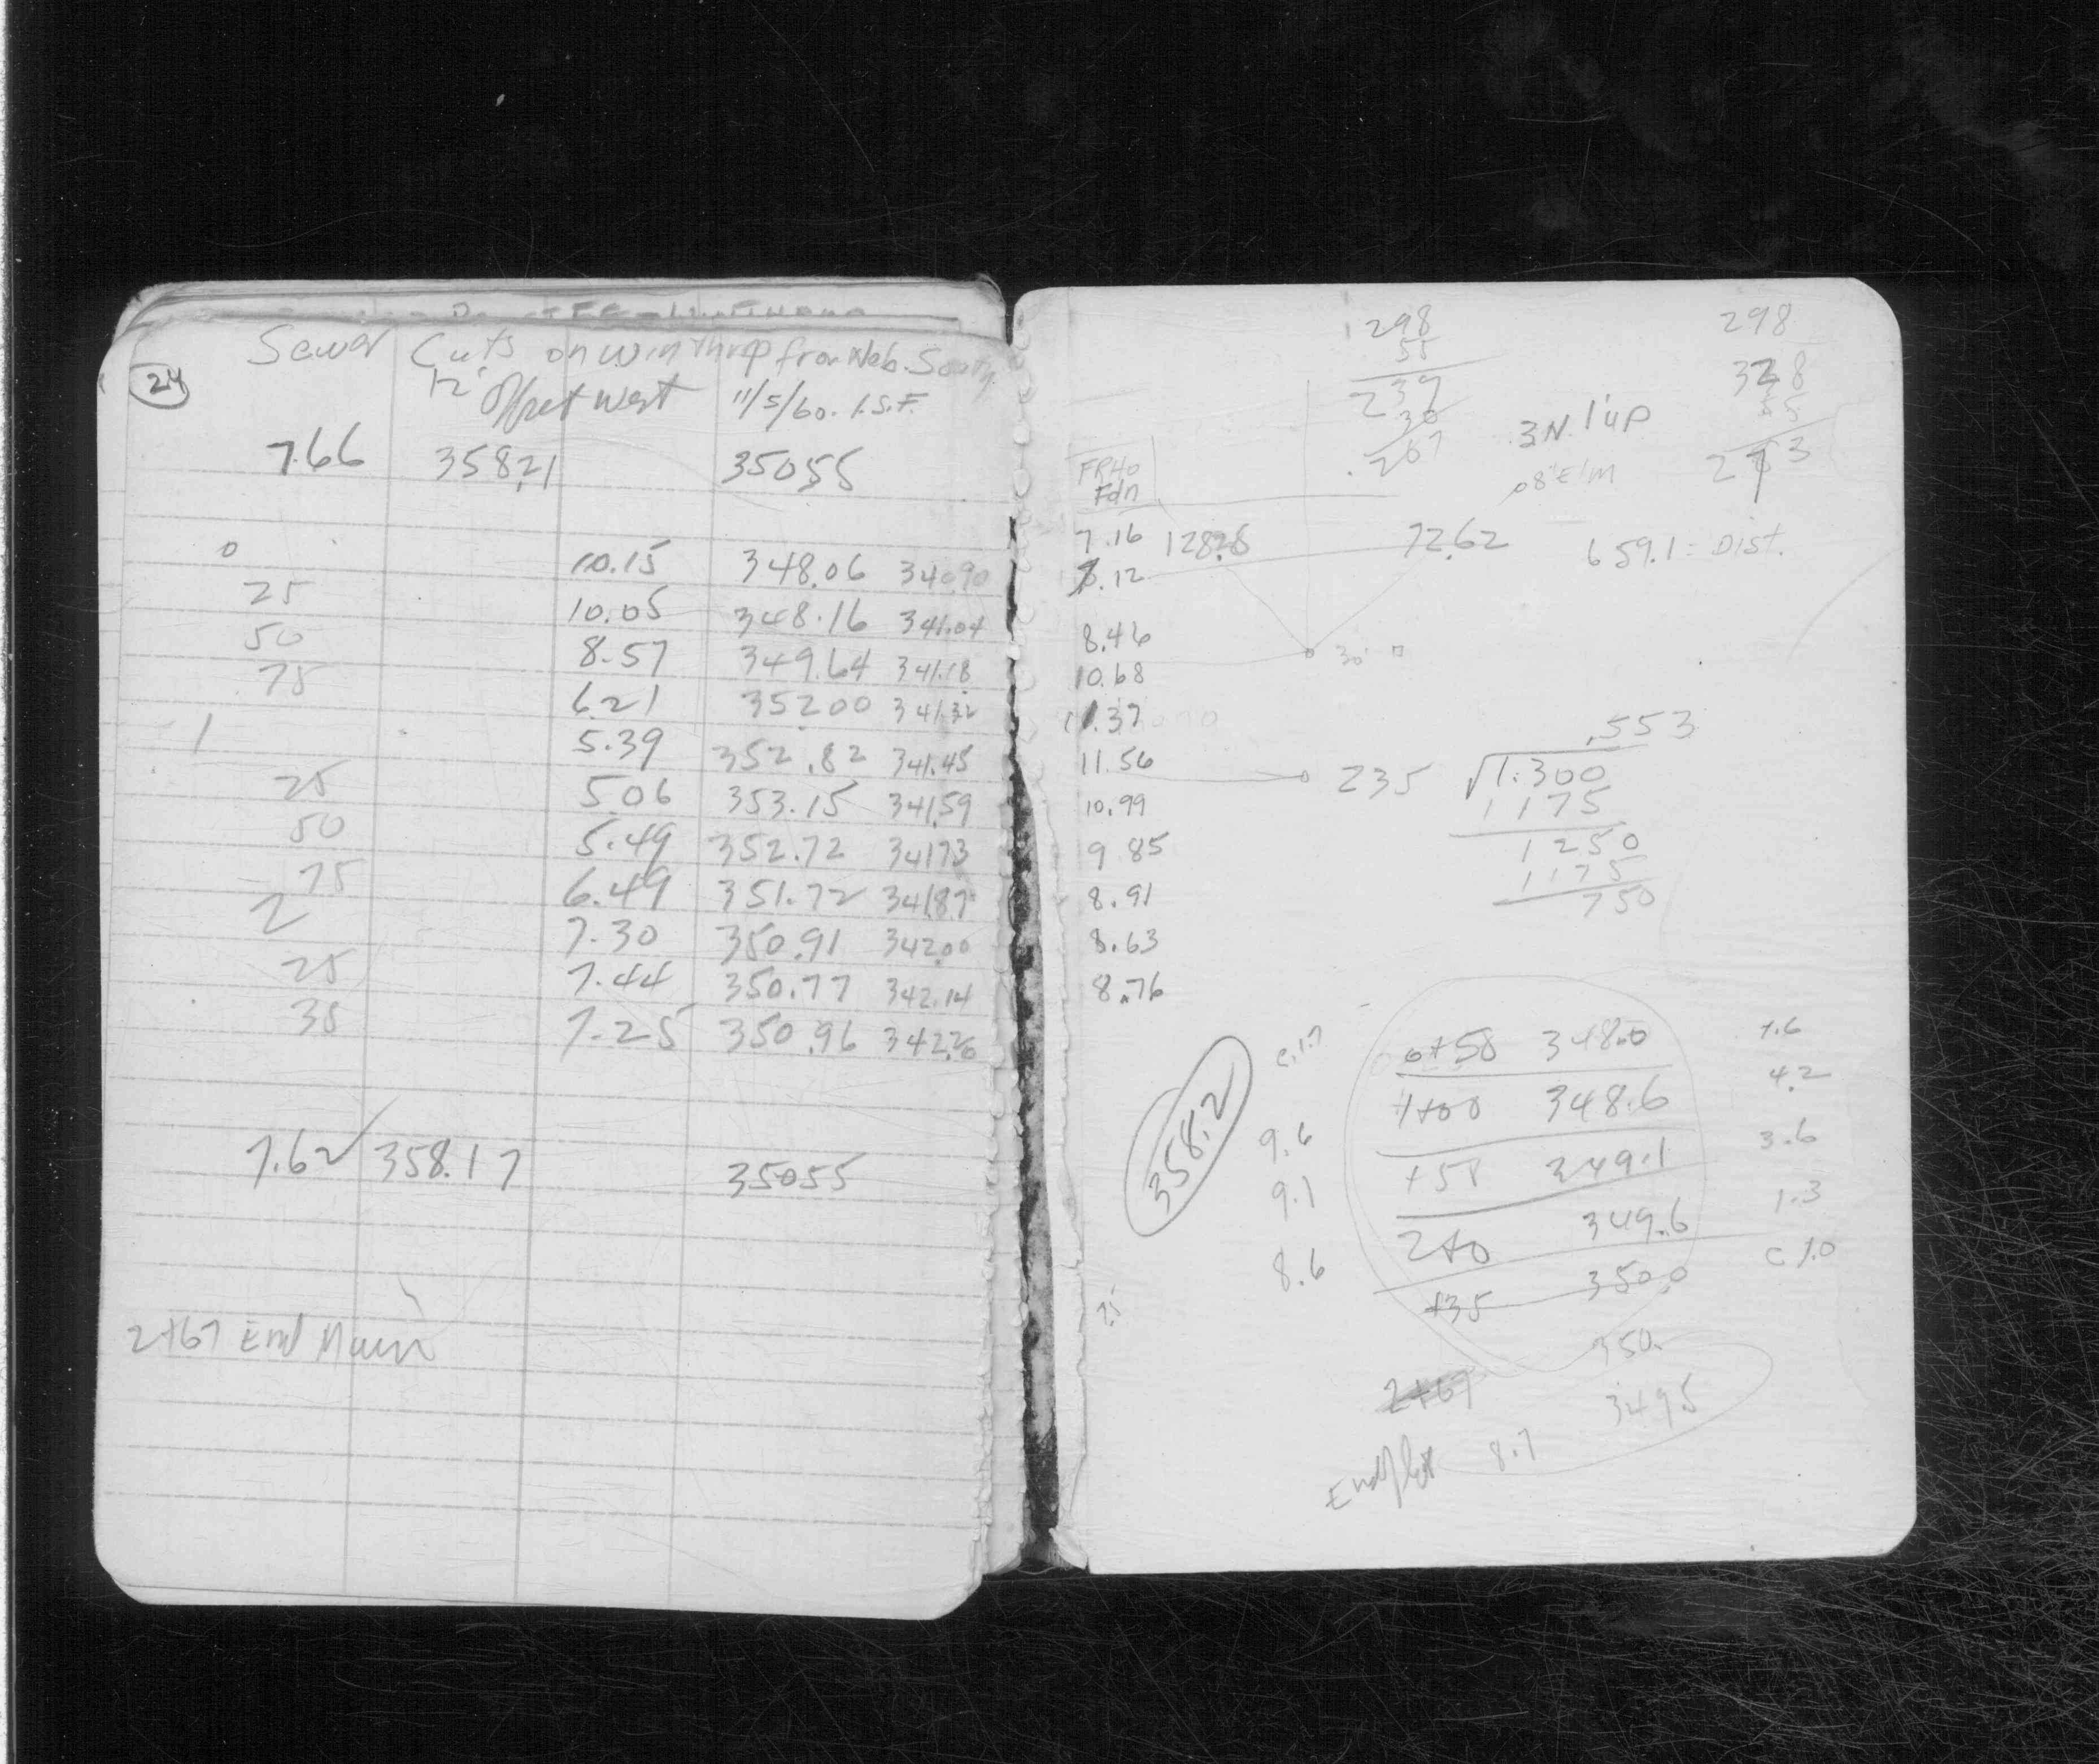 24
Sewer Cuts on Winthrop from Web. South
12' Offset West 11/5/60. I.S.F.
7.66 358.21 350.55
0 10.15 348.06 340.90
25 10.05 348.16 341.04
50 8.57 349.64 341.18
75 6.21 352.00 341.32
1 5.39 352.82 341.45
25 5.06 353.15 341.59
50 5.49 352.72 341.73
75 6.49 351.72 341.87
2 7.30 350.91 342.00
25 7.44 350.77 342.14
35 7.25 350.96 342.20
7.62 358.17 350.55
2+67 End Main
1298
55
239
30
.267
298
328
55
273
3N. 1'up
08"Elm
Fdn
7.16 128.28 72.62 659.1 = Dist.
7.12
8.46
30'
10.68
11.37
11.56
10.99
9.85
8.91
8.63
8.76
.553
235 √1.300
1175
1250
1175
750
358.2
c.1.7 0+58 348.0 7.6
1+00 348.6 4.2
9.6 +58 349.1 3.6
9.1 2+0 349.6 1.3
8.6 +35 350.0 c 1.0
350.
2+67 349.5
8.7